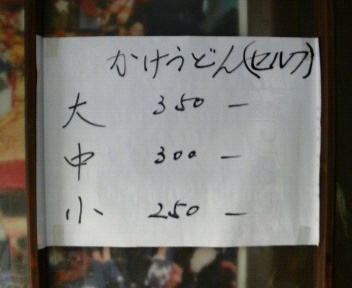 かけうどん(セルフ)
大 350 ー
中 300 ー
小 250 ー